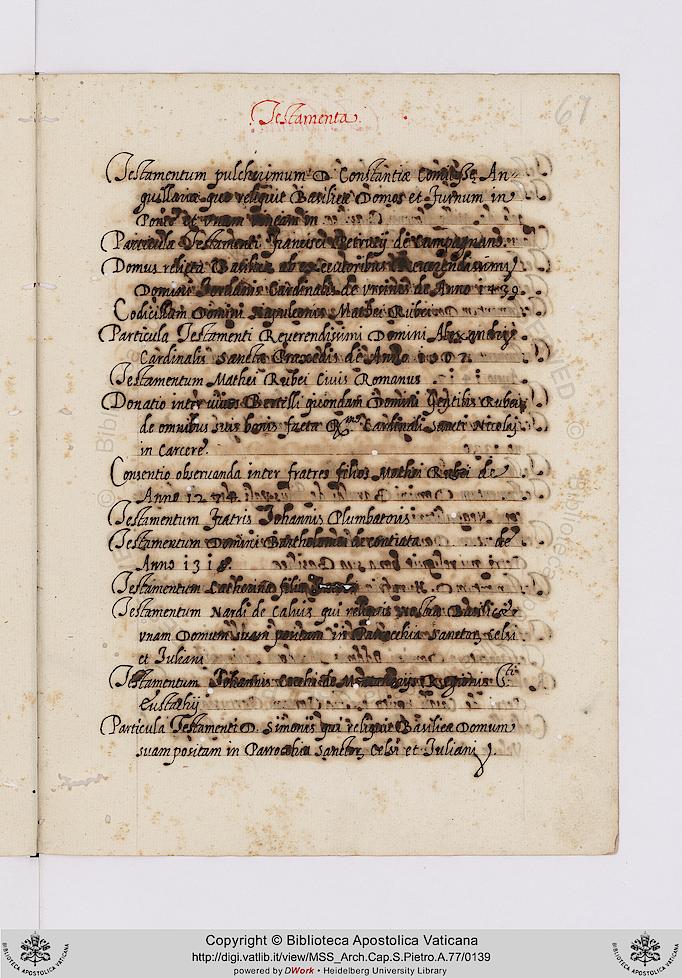 Testamenta.
67
Testamentum pulcherrimum D. Constantiæ Comitissæ An-
guillariæ quo reliquit Basilicæ Domos et Furnum in
Ponte et vnam Vineam in
Particula Testamenti Francisci Petrucij de Campagnano
Domus relicta Basilicæ ab executoribus Reuerendissimi
Domini Iordanis Cardinalis de vrsinis de Anno 1439.
Codicillum Domini Neapuleonis Mathei Rubei
Particula Testamenti Reuerendissimi Domini
Cardinalis Sanctæ Praxedis de Anno
Testamentum Mathei Rubei Ciuis Romanus
Donatio inter viuos Bertelli quondam Domini Gentilis Rubeis
de omnibus suis bonis facta Cardinali Sancti Nicolai
in Carcere.
Consentio obseruanda inter fratres filios Mathei Rubei de
Anno 12
Testamentum Fratris Iohannis Plumbatoris
Testamentum Domini Bartholomei de
Anno 1318.
Testamentum Catherinæ filiæ
Testamentum Nardi de Caluis qui reliquit nostræ Basilicæ
vnam Domum suam positam in Parrochia Sanctor. Celsi
et Iuliani
Testamentum Iohannis Regionis Sti
Eustachij
Particula Testamenti D. Simonis qui reliquit Basilicæ Domum
suam positam in Parrochia Sanctor. Celsi et Iuliani.
Copyright © Biblioteca Apostolica Vaticana
http://digi.vatlib.it/view/MSS_Arch.Cap.S.Pietro.A.77/0139
powered by DWork • Heidelberg University Library